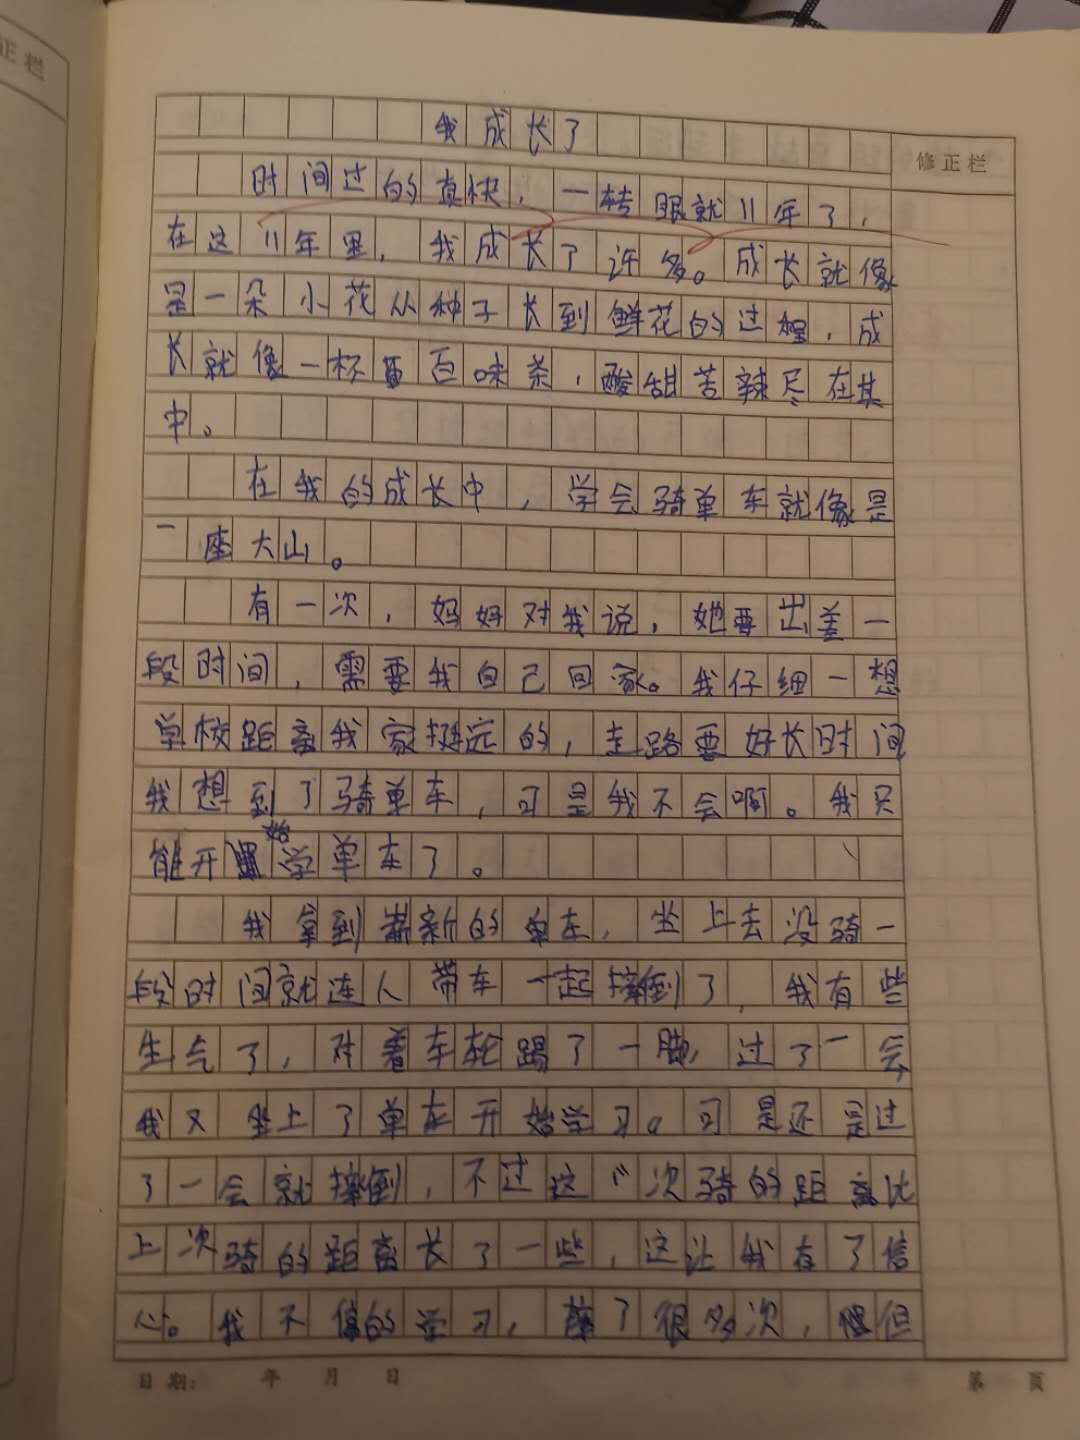 正栏
修正栏
我成长了
时间过的真快，一转眼就11年了，
在这11年里，我成长了许多。成长就像
是一朵小花从种子长到鲜花的过程，成
长就像一杯百味茶，酸甜苦辣尽在其
中。
在我的成长中，学会骑单车就像是
一座大山。
有一次，妈妈对我说，她要出差一
段时间，需要我自己回家。我仔细一想
学校距离我家挺远的，走路要好长时间
我想到了骑单车，可是我不会啊。我只
能开始学单车了。
我拿到崭新的单车，坐上去没骑一
段时间就连人带车一起摔倒了，我有些
生气了，对着车轮踢了一脚，过了一会
我又坐上了单车开始学习。可是还是过
了一会就摔倒，不过这次骑的距离比
上次骑的距离长了一些，这让我有了信
心。我不停的学习，摔了很多次，但
日期： 年 月 日
第 页